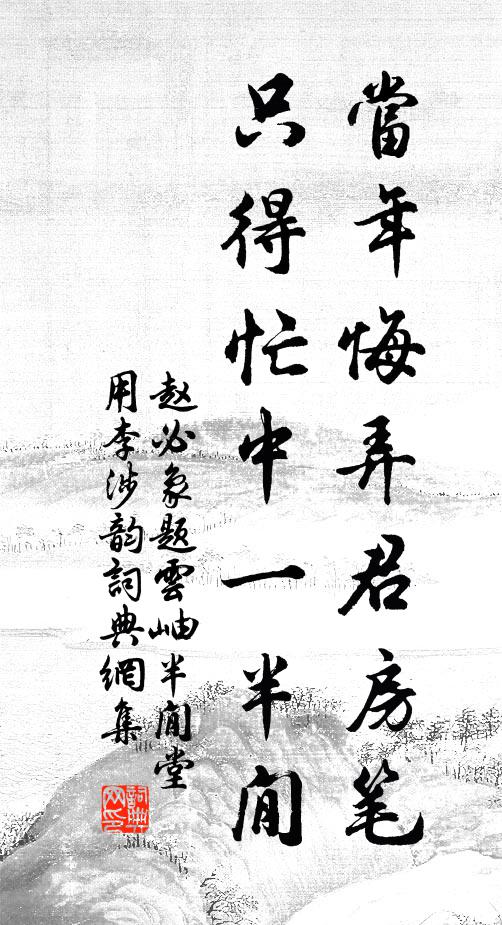 當年悔弄君房笔
只得忙中一半閒
赵必象題雲岫半閒堂
用李涉韵詞典網集